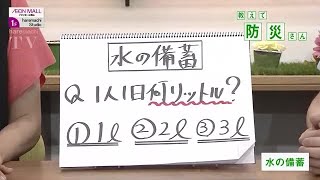 AEON MALL
hanamachi Studio
教えて
防災さん
水の備蓄
Q 1人1日何リットル?
①1ℓ ②2ℓ ③3ℓ
水の備蓄